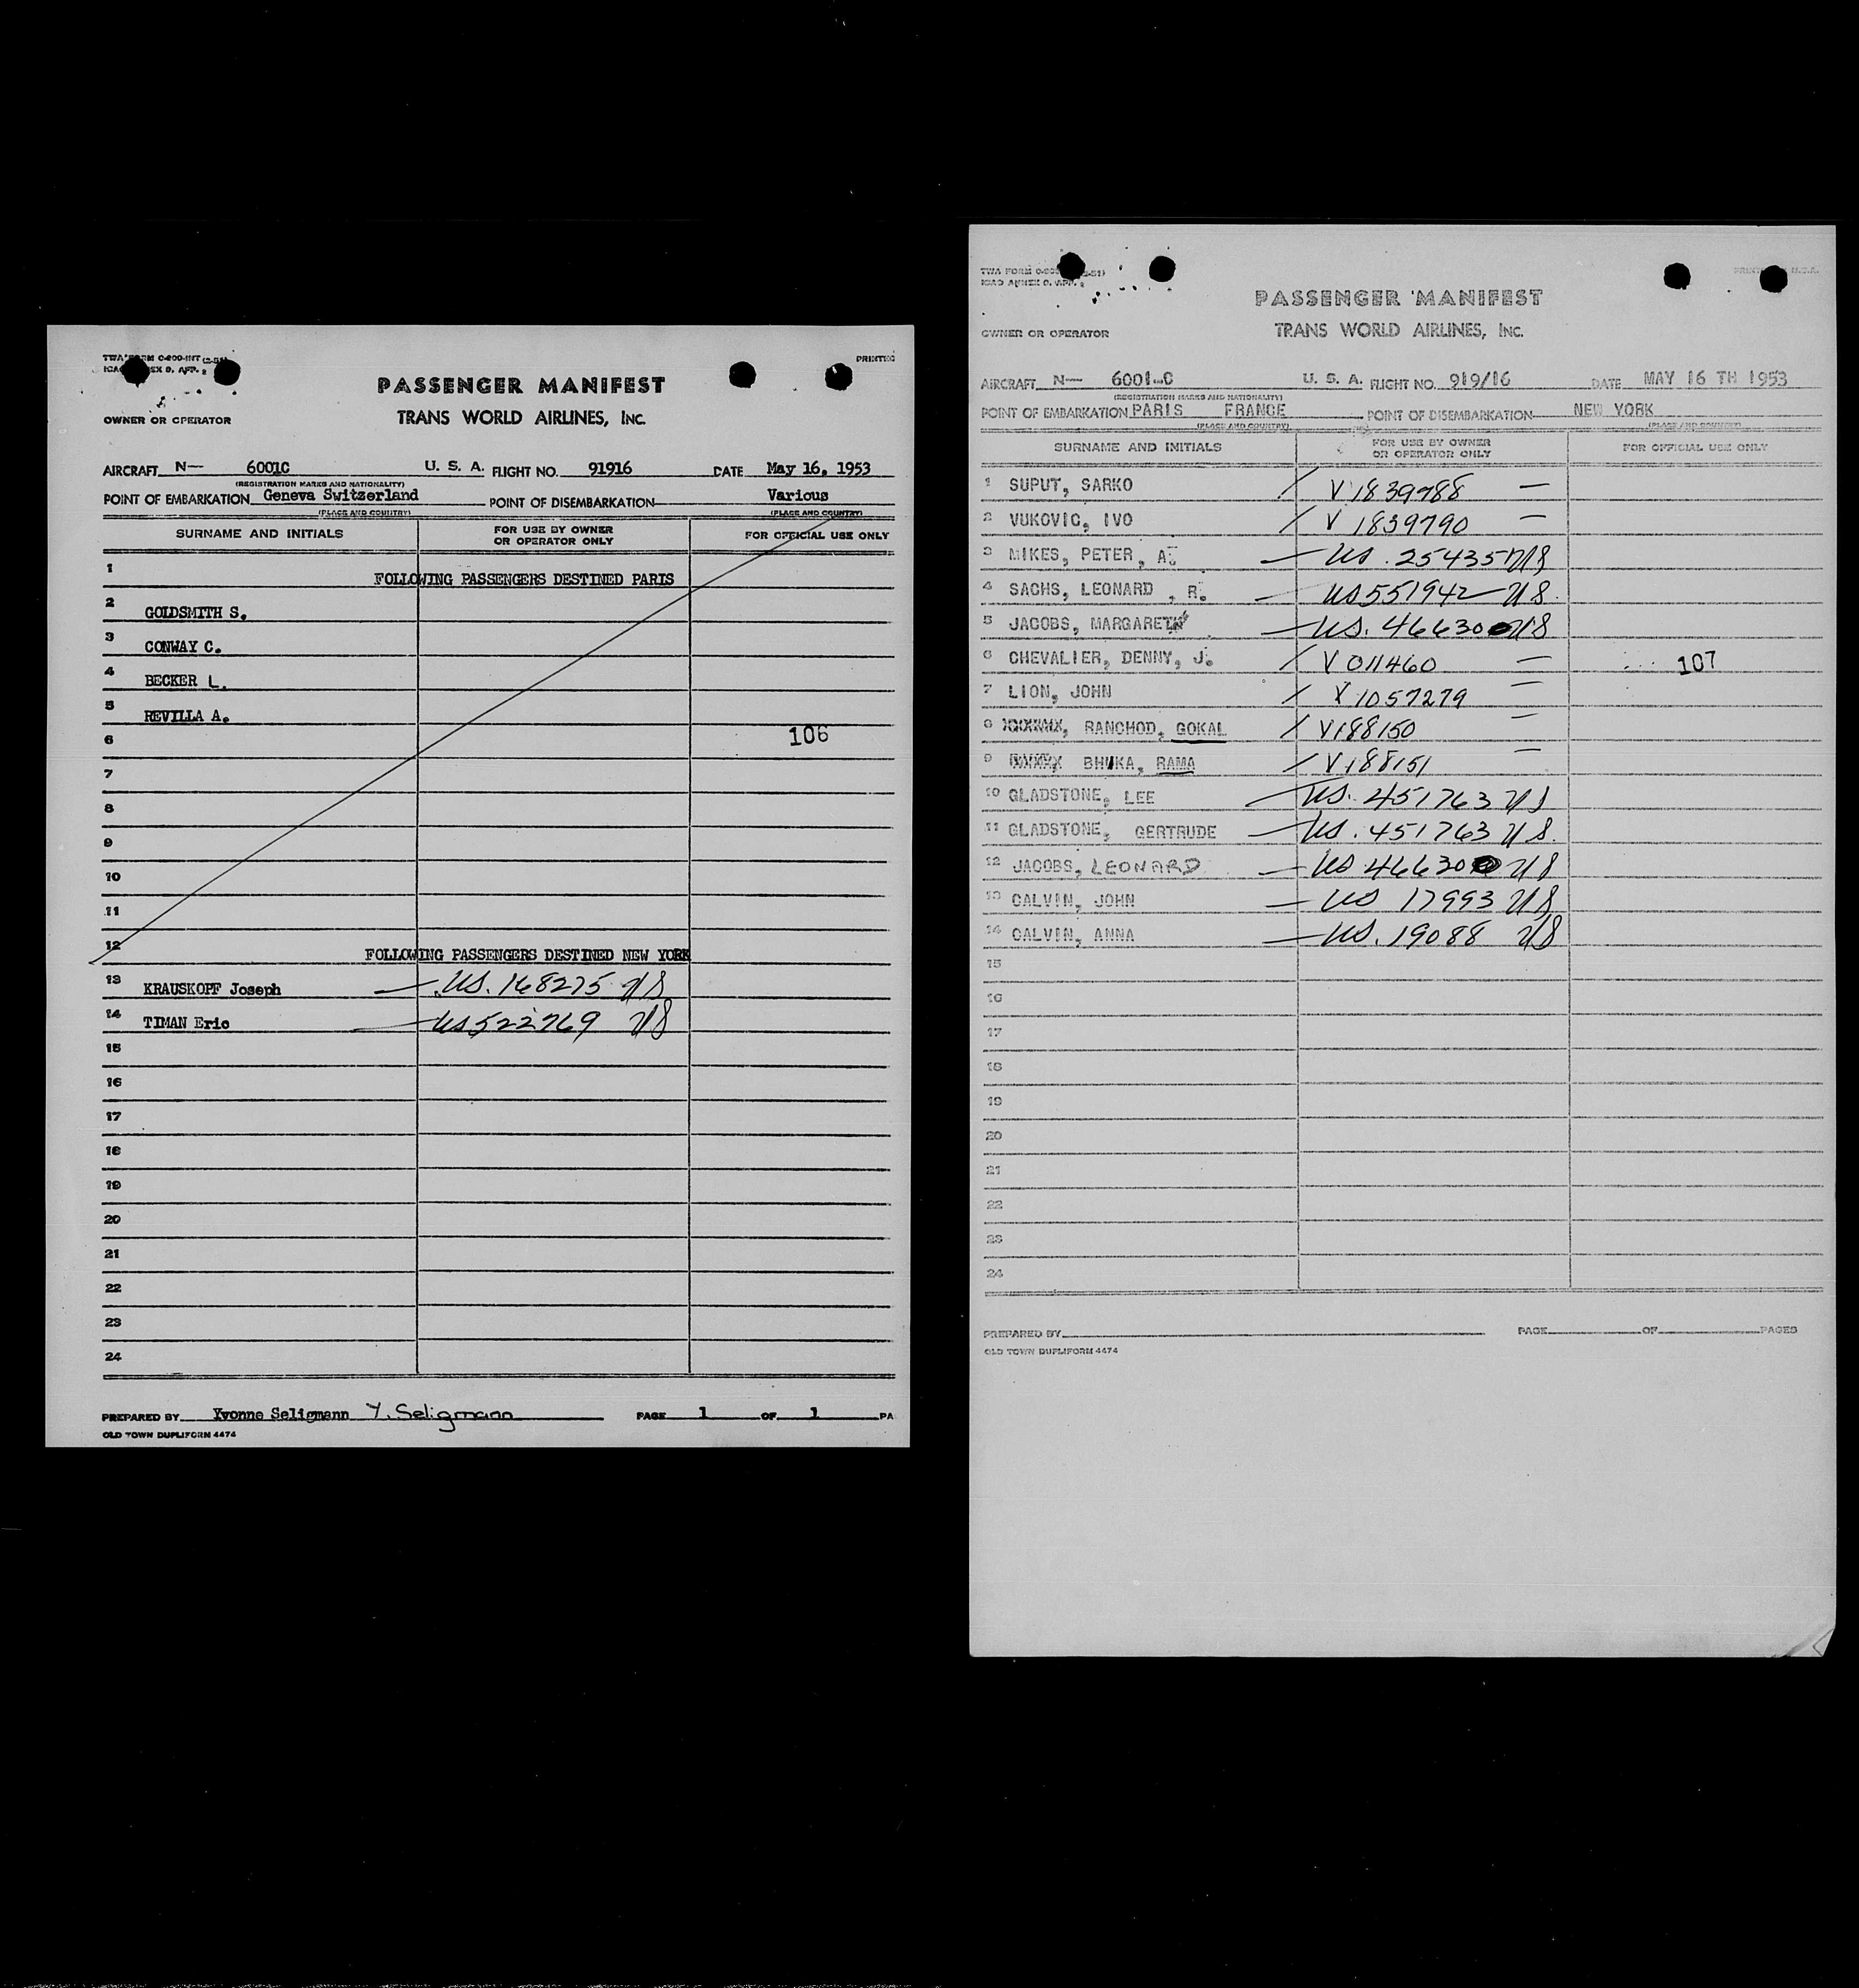 TWA FORM O-200-INT (2-51)
PRINTED
PASSENGER MANIFEST
OWNER OR OPERATOR
TRANS WORLD AIRLINES, INC.
AIRCRAFT N— 6001C U. S. A. FLIGHT NO. 91916 DATE May 16, 1953
(REGISTRATION MARKS AND NATIONALITY)
POINT OF EMBARKATION Geneva Switzerland POINT OF DISEMBARKATION Various
(PLACE AND COUNTRY) (PLACE AND COUNTRY)
SURNAME AND INITIALS FOR USE BY OWNER OR OPERATOR ONLY FOR OFFICIAL USE ONLY
1 FOLLOWING PASSENGERS DESTINED PARIS
2 GOLDSMITH S.
3 CONWAY C.
4 BECKER L.
5 REVILLA A.
6 106
7
8
9
10
11
12 FOLLOWING PASSENGERS DESTINED NEW YORK
13 KRAUSKOPF Joseph — US. 168275 US
14 TIMAN Eric — US 522769 US
15
16
17
18
19
20
21
22
23
24
PREPARED BY Yvonne Seligmann Y. Seligmann PAGE 1 OF 1 PA
OLD TOWN DUPLIFORM 4474
PASSENGER MANIFEST
OWNER OR OPERATOR TRANS WORLD AIRLINES, INC.
AIRCRAFT N— 6001-C U. S. A. FLIGHT NO. 919/16 DATE MAY 16 TH 1953
(REGISTRATION MARKS AND NATIONALITY)
POINT OF EMBARKATION PARIS FRANCE POINT OF DISEMBARKATION NEW YORK
(PLACE AND COUNTRY) (PLACE AND COUNTRY)
SURNAME AND INITIALS FOR USE BY OWNER OR OPERATOR ONLY FOR OFFICIAL USE ONLY
1 SUPUT, SARKO / V 1839788 —
2 VUKOVIC, IVO / V 1839790 —
3 MIKES, PETER, A. — US. 25435 US
4 SACHS, LEONARD , R. — US 551942 US.
5 JACOBS, MARGARET — US. 46630 US
6 CHEVALIER, DENNY, J. / V 011460 — 107
7 LION, JOHN / V 1057279 —
8 RANCHOD, GOKAL / V188150 —
9 BHUKA, RAMA / V188151 —
10 GLADSTONE, LEE — US. 451763 US
11 GLADSTONE, GERTRUDE — US. 451763 US.
12 JACOBS, LEONARD — US 46630 US
13 CALVIN, JOHN — US 17993 US
14 CALVIN, ANNA — US. 19088 US
15
16
17
18
19
20
21
22
23
24
PREPARED BY PAGE OF PAGES
OLD TOWN DUPLIFORM 4474